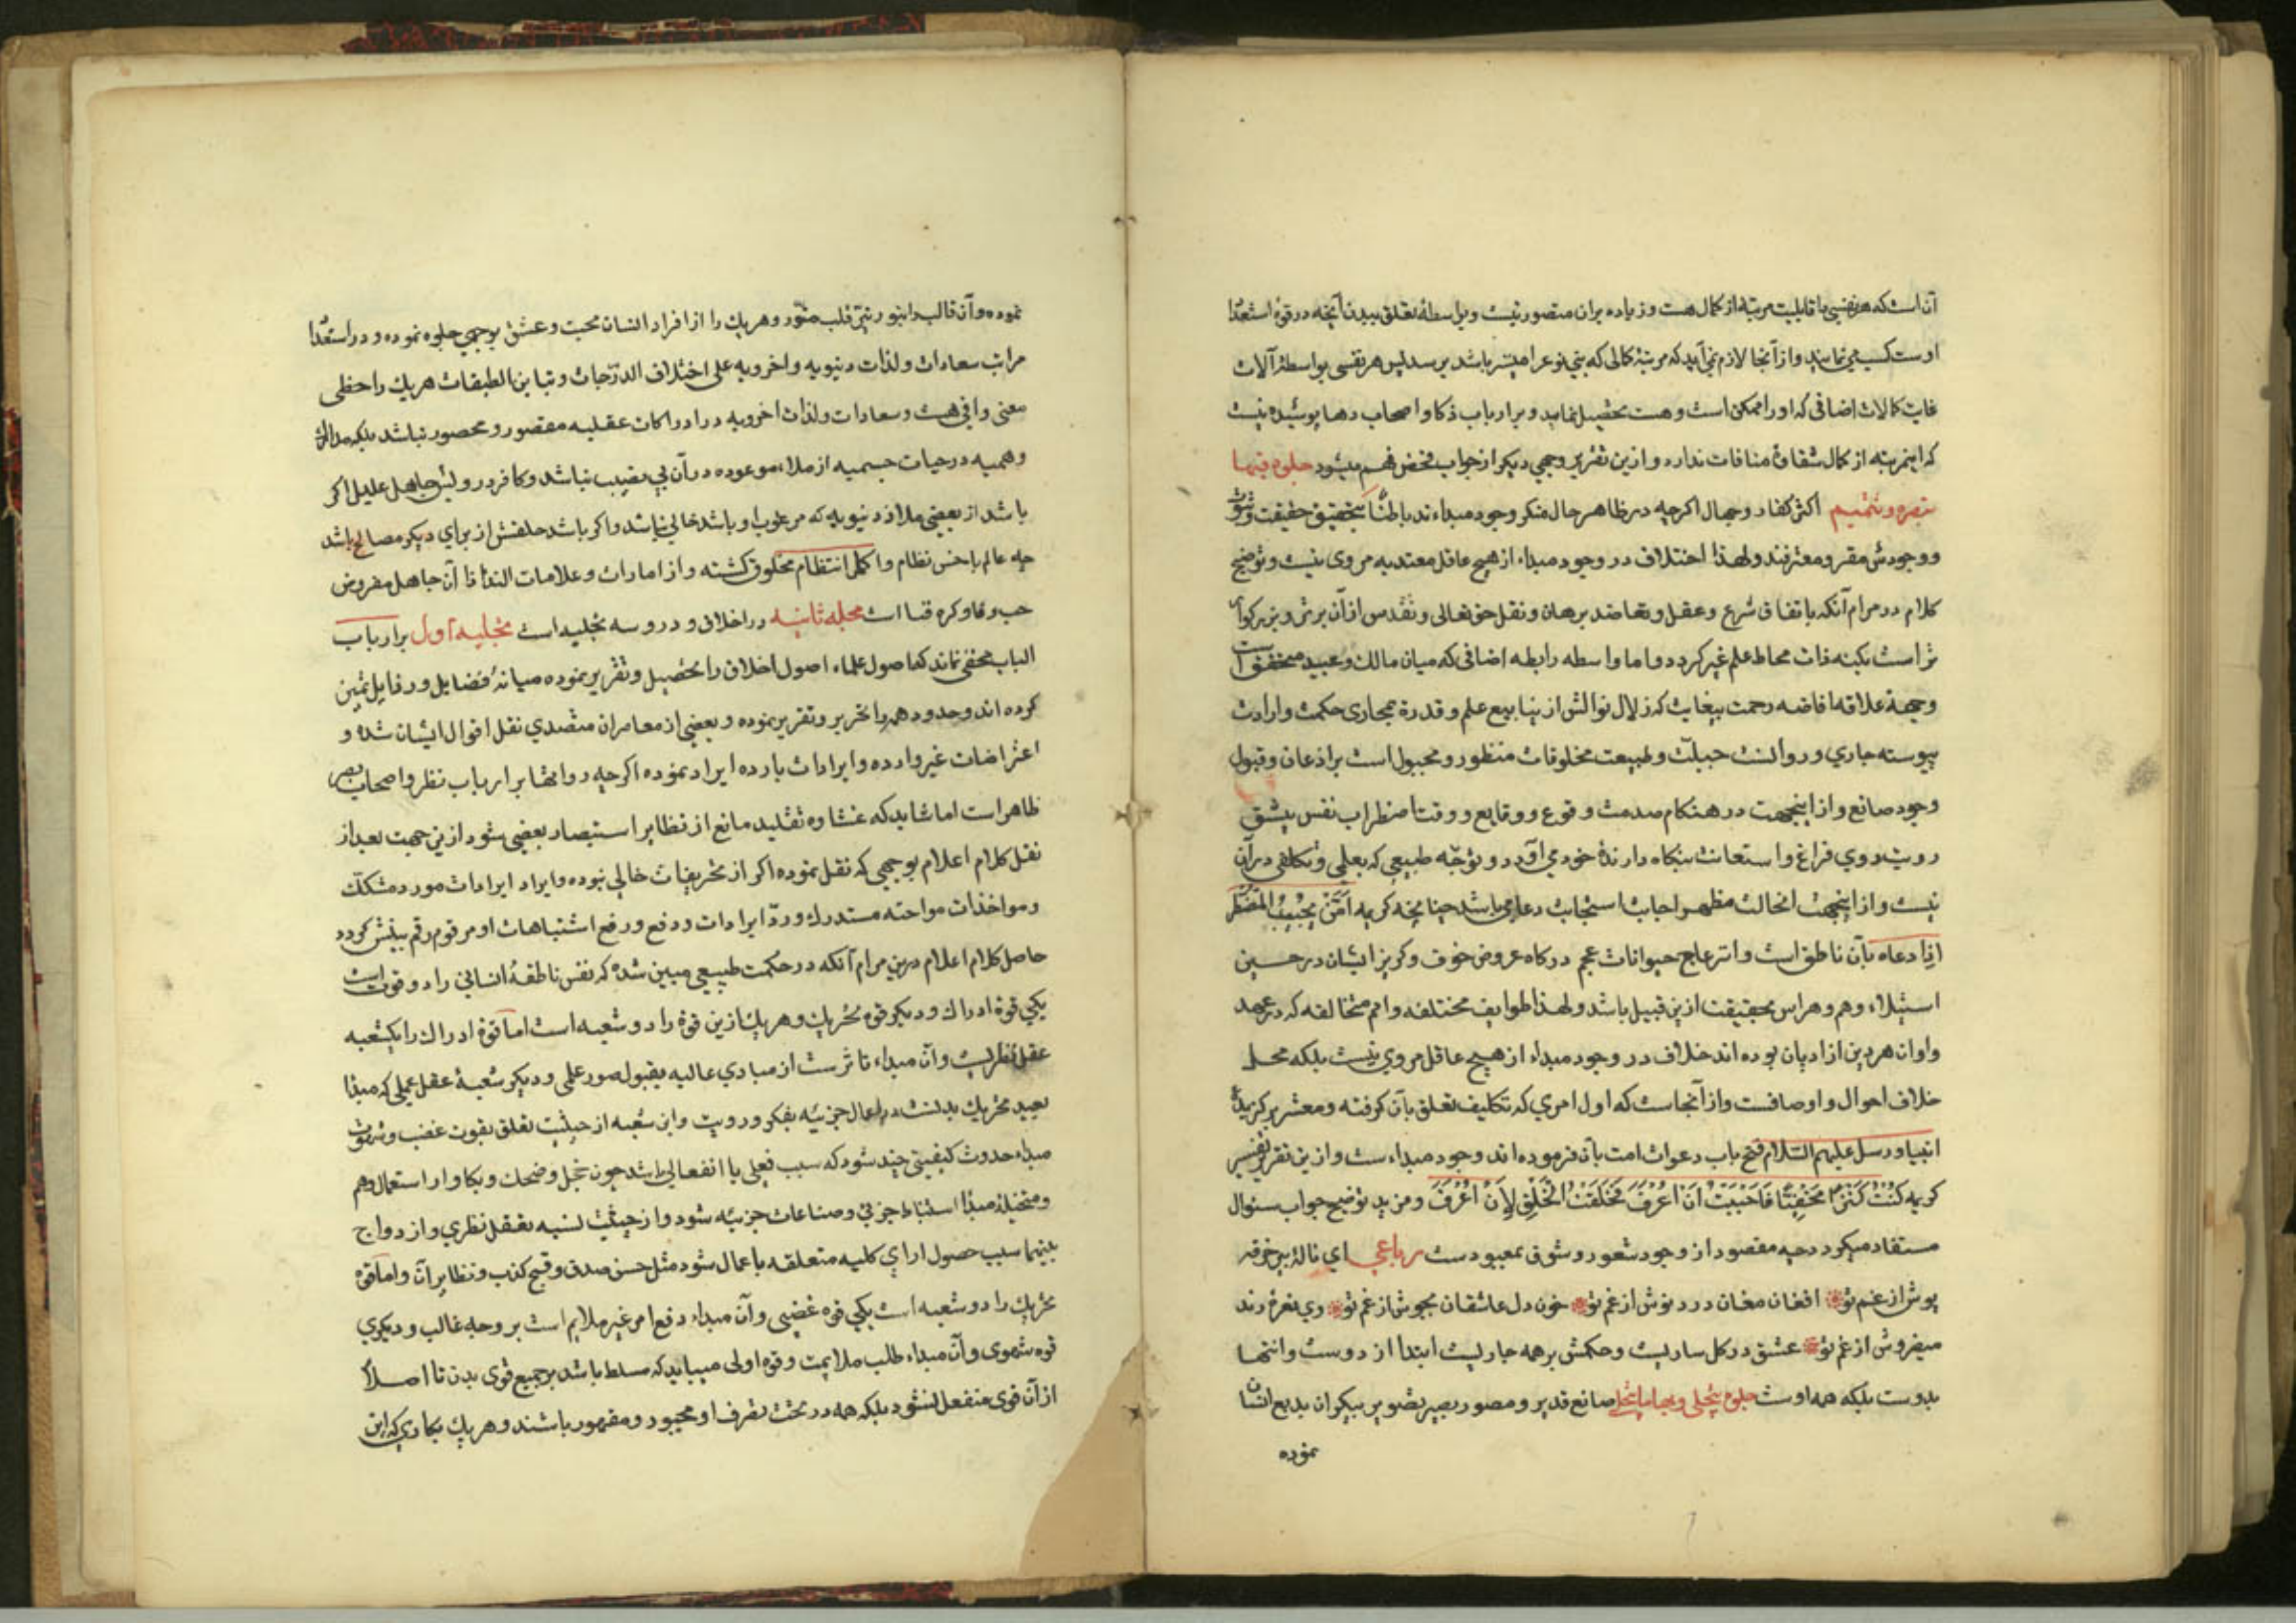 آن است که هر نفسی با قابلیت مرتبهٔ از کمال هست و زیاده بران متصور نیست و بواسطهٔ تعلق ببدن آنچه در قوهٔ استعدا
اوست کسب می نمایند و از آنجا لازم نمی آید که مرتبهٔ کمالی که بنی نوع را میسر باشد برسد پس هر نفسی بواسطهٔ آلات
غایت کمالات اضافی که او را ممکن است و هست تحصیل نماید و بر ارباب ذکا و اصحاب دها پوشیده نیست
که اینمرتبه از کمال شقاق منافات ندارد و ازین تقریر وجهی دیگر از جواب فحص فهم میشود جلوه فیها
تبصره و تتمیم اکثر کفار و جهال اکرچه در ظاهر حال منکر وجود مبداءند باطنًا بتحقیق حقیقت و ثبوت
و وجودش مقر و معترفند و لهذا اختلاف در وجود مبداء از هیچ عاقل معتد به مروی نیست و توضیح
کلام در مرام آنکه باتفاق شرع و عقل و تعاضد برهان و نقل حق تعالی و تقدس از آن برتر و بزرکوا
تر است بکنه ذات محاط علم غیر کردد و اما واسطه رابطه اضافی که میان مالک و عبید متحقق است
وجهة علاقه افاضه رحمت بیغایت که زلال نوالش از ینابیع علم و قدرة بمجاری حکمت و ارادت
پیوسته جاری و روانست جبلت و طبیعت مخلوقات منظور و مجبول است بر اذعان و قبول
وجود صانع و از اینجهت در هنکام صدمت وقوع و وقایع و وقت اضطراب نفس بیشق
رویت روی فراغ و استعانت بنکاه دارندهٔ خود می آورد و توجّه طبیعی که بعلمی و تکلفی در آن
نیست و از اینجهت انحالت مظهر اجابا استجاب دعا می باشد چنانچه کریمه اَمَّنْ یُجیبُ المُضْطَرَّ
اِذا دعاه بآن ناطق است و انزعاج حیوانات عجم در کاه عروض خوف و کریز ایشان در حین
استیلاء وهم و هراس بحقیقت ازین قبیل باشد و لهذا طوایف مختلفه و امم متخالفه که در عهد
و اوان هر دین از ادیان بوده اند خلاف در وجود مبداء از هیچ عاقل مروی نیست بلکه محل
خلاف احوال و اوصافست و از آنجاست که اول امری که تکلیف تعلق بآن کرفته و معشر برکزیدهٔ
انبیا و رسل علیهم السّلام فتح باب دعوات امت بآن فرموده اند وجود مبداء ست و ازین تقریر تفسیر
کریه کُنْتُ کَنْزًا مَخْفِیًّا فَاَحْبَبْتُ اَنْ اُعْرَفَ فَخَلَقْتُ الْخَلْقَ لِاَنْ اُعْرَفَ و مزید توضیح جواب سئوال
مستفاد میکردد چه مقصود از وجود شعور و شوق بمعبودست رباعی ای نالهٔ پیر خرقه
پوش از غم تو افغان مغان درد نوش از غم تو خون دل عاشقان بجوش از غم تو وی نعرهٔ رند
میفروش از غم تو عشق در کل ساریست و حکمش بر همه جاریست ابتدا از دوست و انتها
بدوست بلکه همه اوست جلوه تجلی صانع قدیر و مصور بصیر بتصویر پیکر ان بدیع انشان
نموده
نموده و آن قالب را بنور نیّر قلب منوّر و هریک را از افراد انسان محبت و عشق بوجهی جلوه نموده و در استعدا
مراتب سعادات و لذات دنیویه و اخرویه علی اختلاف الدّرجات و تباین الطبقات هریک را حظی
معنی وافی هست و سعادات و لذات اخرویه در ادراکات عقلیه مقصور و محصور نباشد بلکه مدارک
وهمیه در حیات جسمیه از ملاء موعوده در آن بی نصیب نباشد و کافر درویش جاهل علیل اکر
باشد از بعضی ملاذ دنیویه که مرغوب او باشد خالی نباشد و اکر باشد خلقتش از برای دیکر مصالح باشد
چه عالم باحسن نظام و اکمل انتظام مخلوق کشته و از امارات و علامات التذاذ آن جاهل مفروض
حب بقا و کره فنا است مجله ثانیه در اخلاق و درو سه تجلیه است تجلیه اول بر ارباب
الباب مخفی نماند که اصول علماء اصول اخلاق را تحصیل و تقریر نموده میانهٔ فضایل و رذایل تمیز
کرده اند و حدود همه را تحریر و تقریر نموده و بعضی از معاصران متصدی نقل اقوال ایشان شده و
اعتراضات غیر وارده و ایرادات بارده ایراد نموده اکرچه دوانها بر ارباب نظر و اصحاب بصر
ظاهر است اما شاید که غشاوه تقلید مانع از نظایر استبصار بعضی شود ازین جهت بعد از
نقل کلام اعلام بوجهی که نقل نموده اکر از تحریفات خالی نبوده و ایراد ایرادات مورد مشکک
و مواخذات مواخذه مستدرک و ردّ ایرادات و دفع و رفع اشتباهات او مرقوم رقم بینش کردد
حاصل کلام اعلام درین مرام آنکه در حکمت طبیعی مبین شده که نفس ناطقهٔ انسانی را دو قوت است
یکی قوة ادراک و دیکر قوه تحریک و هریک ازین قوة را دو شعبه است اما قوة ادراک را یکشعبه
عقل نظریست و آن مبداء تاثرست از مبادی عالیه بقبول صور علمی و دیکر شعبهٔ عقل عملی که مبدا
بعید تحریک بدنست در اعمال جزئیه بفکر و رویت و این شعبه از حیثیت تعلق بقوت غضب و شهوت
مبداء حدوث کیفیتی چند شود که سبب فعلی یا انفعالی باشد چون خجل و ضحک و بکا و از استعمال وهم
و متخیله مبدا استنباط جزئی و صناعات جزئیه شود و از حیثیت نسبه بعقل نظری و ازدواج
بینهما سبب حصول ارای کلیه متعلقه باعمال شود مثل حسن صدق و قبح کذب و نظایر آن و اما قوه
تحریک را دو شعبه است یکی قوه غضبی و آن مبداء دفع امر غیر ملایم است بر وجه غالب و دیکری
قوه شهوی و آن مبداء طلب ملایمت و قوة اولی میباید که مسلط باشد بر جمیع قوی بدن تا اصلا
از آن قوی منفعل نشود بلکه همه در تحت تصرف او مجبور و مقهور باشند و هریک بکاری که این